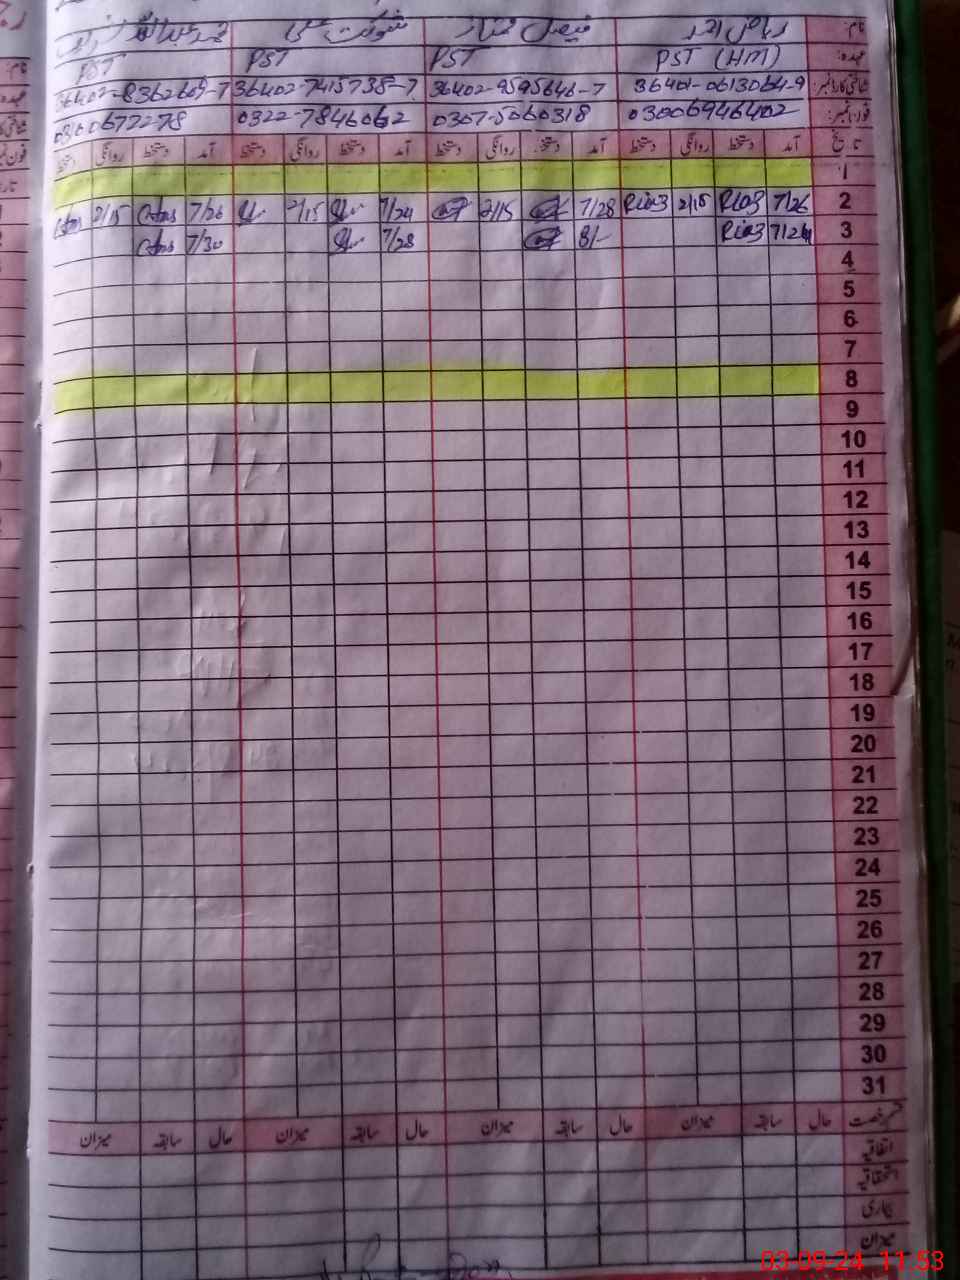 نام: ریاض احمد فیصل ممتاز شوکت علی
عہدہ: PST (HM) PST PST PST
شناختی کارڈ نمبر: 36401-0613064-9 36402-9595646-7 36402-7415738-7 36402-8362609-7
فون نمبر: 03006946402 0307-5060318 0322-7846062 03160672278
تاریخ آمد دستخط روانگی دستخط آمد دستخط روانگی دستخط آمد دستخط روانگی دستخط آمد دستخط روانگی دستخط
1
2 7/26 Riaz 2/15 Riaz 7/28 2/15 7/24 2/15 7/26 2/15
3 7/24 Riaz 8/- 7/28 7/30
4
5
6
7
8
9
10
11
12
13
14
15
16
17
18
19
20
21
22
23
24
25
26
27
28
29
30
31
قسم رخصت حال سابقہ میزان حال سابقہ میزان حال سابقہ میزان حال سابقہ میزان
اتفاقیہ
استحقاقیہ
بیماری
میزان
03-09-24 11:53